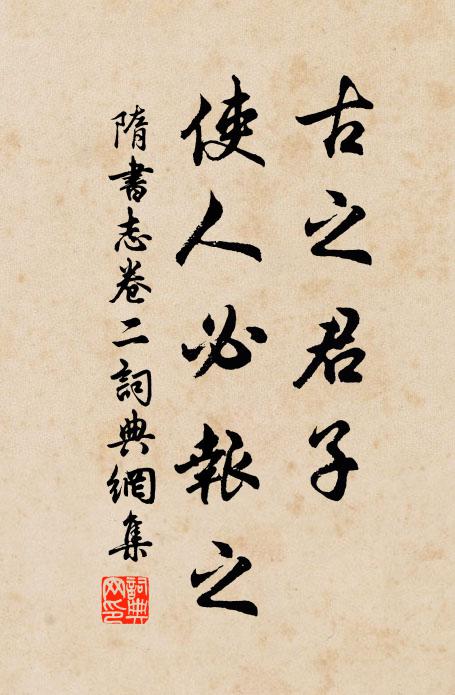 古之君子
使人必報之
隋書志卷二詞典網集
詞典网印